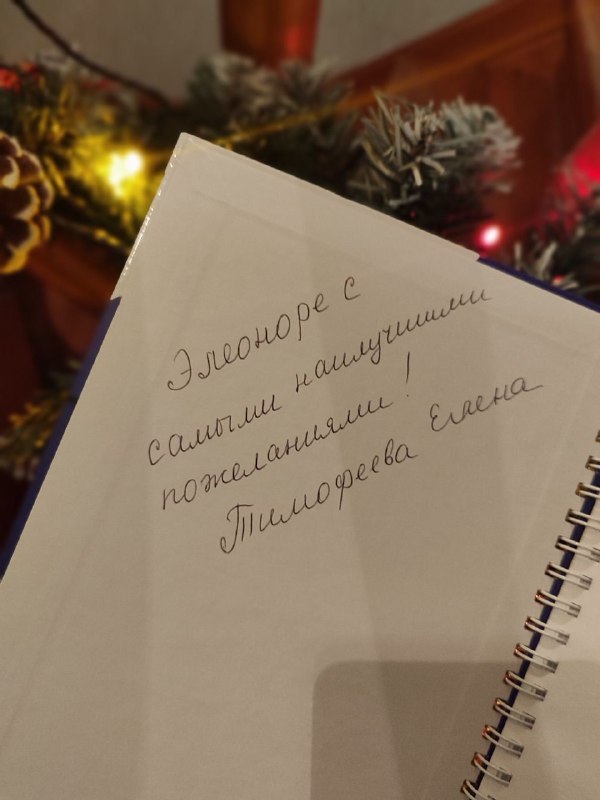 Элеоноре с
самыми наилучшими
пожеланиями!
Тимофеева Елена